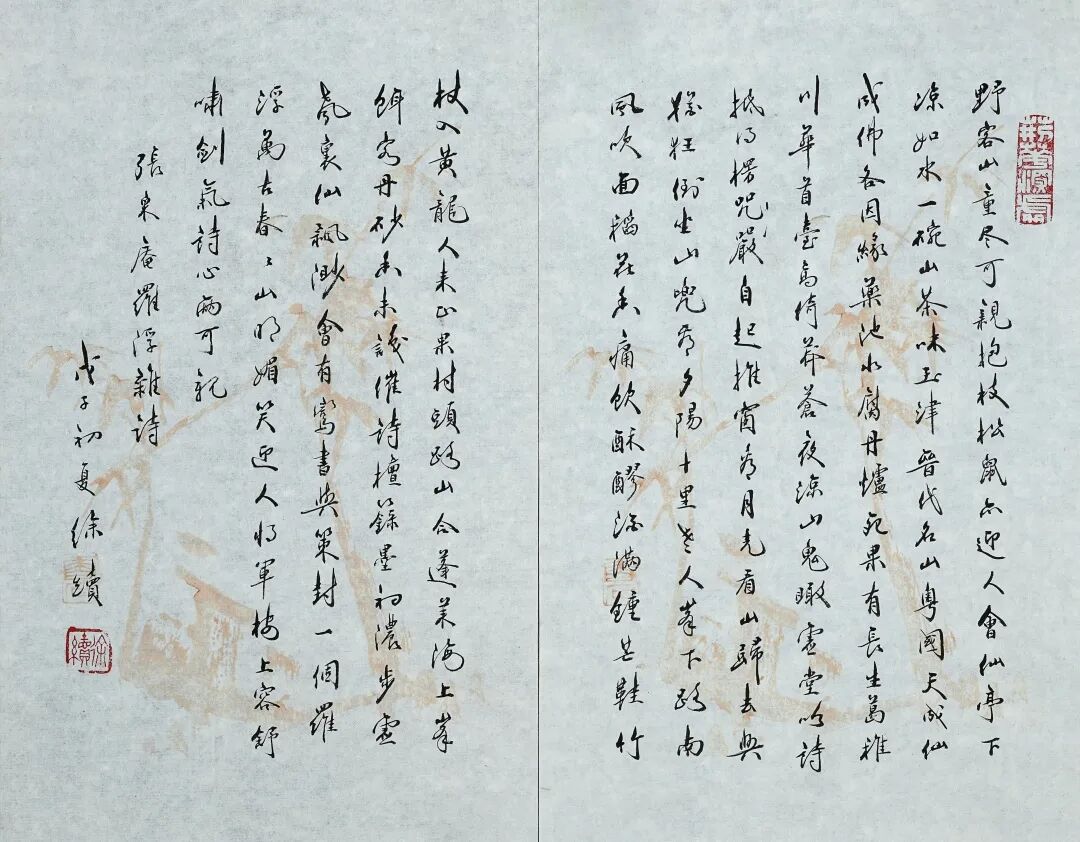 野客山童尽可親抱枝松鼠亦迎人會仙亭下
涼如水一碗山茶味玉津晉代名山粤國天成仙
成佛各因緣藥池水腐丹爐死果有長生葛稚
川華首臺高倚莽蒼夜涼山鬼瞰虛堂吟詩
抵得楞咒嚴自起推窗看月光看山歸去與
猶狂倒坐山兜看夕陽十里老人峯下路南
風吹面稻花香痛飲酥醪酒滿鍾芒鞋竹
杖入黄龍人来正果村頭路山合蓬萊海上峯
餌客丹砂香未謏催詩檀篆墨初濃步虛
聲裏仙飄渺會有鸞書與策封一個羅
浮萬古春春山明媚笑迎人將軍樓上容舒
嘯劍氣詩心兩可親
張泉庵羅浮雜詩
戊子初夏徐續
徐續